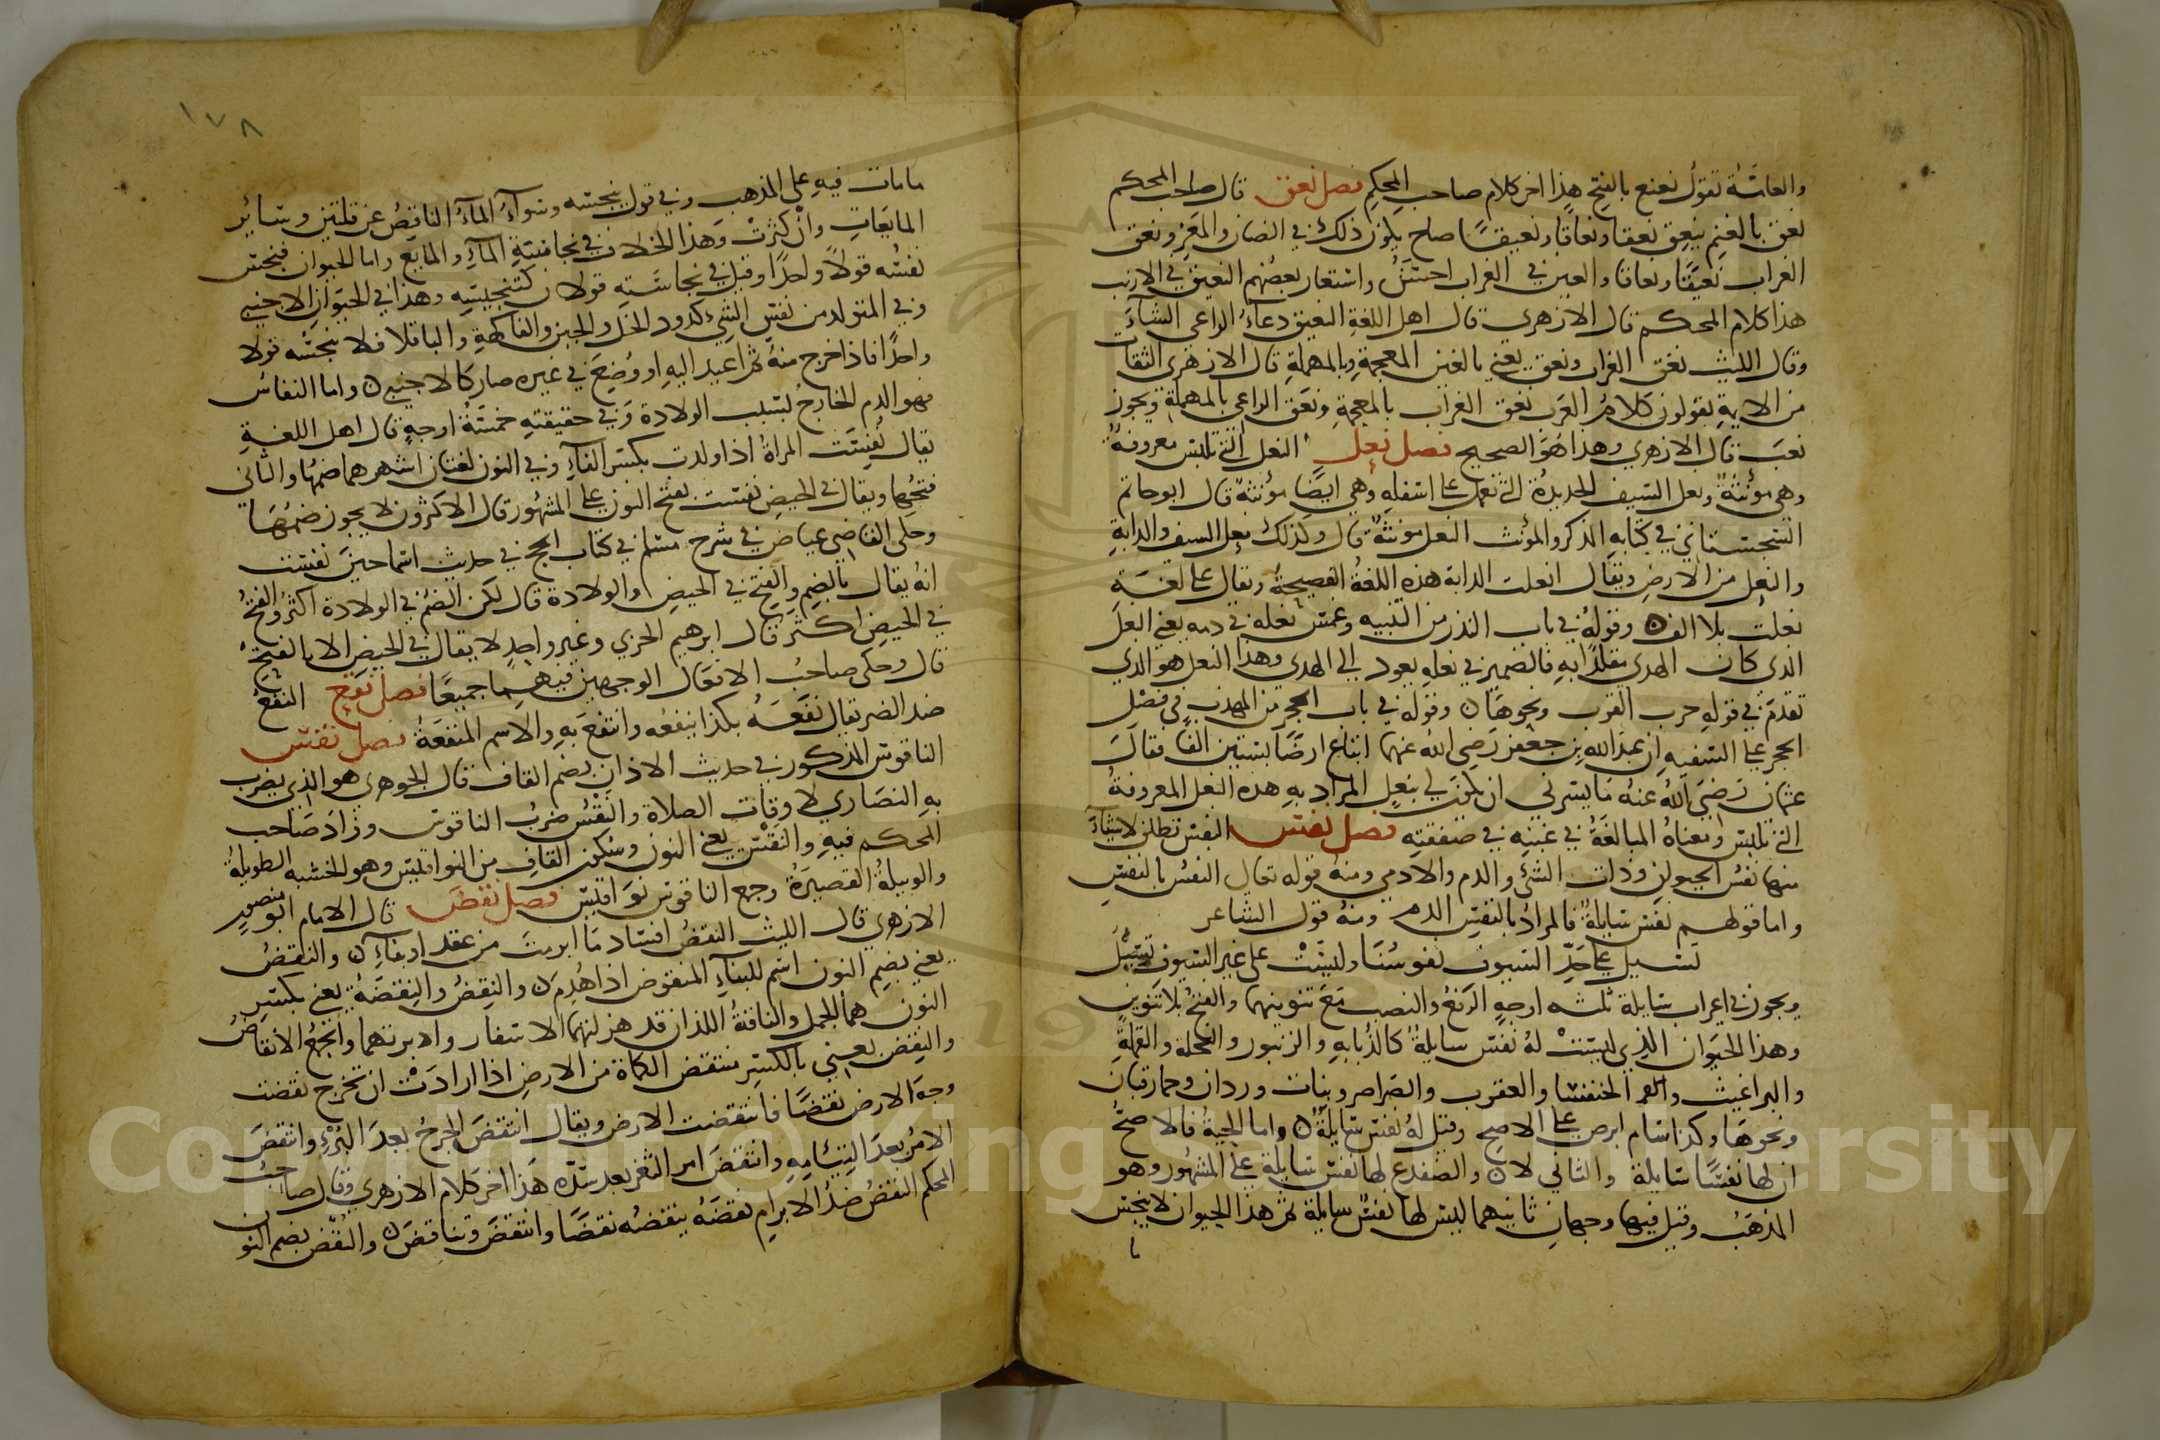 والعامة تقول نعنع بالفتح هذا اخر كلام صاحب المحكم فصل نعق قال صاحب المحكم
نعق بالغنم ينعق نعقا ونعاقا ونعيقا صاح يكون ذلك في الضان والمعز ونعق
الغراب نعيقا ونعاقا والغين في الغراب احسن واستعار بعضهم النعيق في الارنب
هذا كلام المحكم قال الازهري قال اهل اللغة النعيق دعاء الراعي الشاء
وقال الليث نغق الغراب ونعق يعني بالغين المعجمة وبالمهملة قال الازهري الثقات
من الايمة يقولون كلام العرب نغق الغراب بالمعجمة ونعق الراعي بالمهملة ويجوز
نعب قال الازهري وهذا هو الصحيح فصل نعل النعل التي تلبس معروفة
وهي مؤنثة ونعل السيف الحديدة التي تعمل على اسفله وهي ايضا مؤنثة قال ابو حاتم
السجستاني في كتابه المذكر والمؤنث النعل مؤنثة قال وكذلك نعل السيف والدابة
والنعل من الارض ويقال انعلت الدابة هذه اللغة الفصيحة ويقال على لغية
نعلت بلا الف وقوله في باب النذر من التنبيه وغمس نعله في دمه يعني النعل
الذي كان الهدي مقلدا به فالضمير في نعله يعود الى الهدي وهذا النعل هو الذي
تقدم في قوله خرب القرب ونحوها وقوله في باب الحجر من المهذب في فصل
الحجر على السفيه ان عبد الله بن جعفر رضي الله عنهما ابتاع ارضا بستين الفا فقال
عثمان رضي الله عنه ما يسرني ان تكون لي بنعل المراد به هذه النعل المعروفة
التي تلبس ومعناه المبالغة في غبنه في صفقته فصل نفس النفس تطلق لاشياء
منها نفس الحيوان وذات الشئ والدم والادمي ومنه قوله تعالى النفس بالنفس
واما قولهم نفس سايلة فالمراد بالنفس الدم ومنه قول الشاعر
تسيل على حد السيوف نفوسنا وليست على غير السيوف تسيل
ويجوز في اعراب سايلة ثلثه اوجه الرفع والنصب مع تنوينهما والفتح بلا تنوين
وهذا الحيوان الذي ليست له نفس سايلة كالذبابه والزنبور والنحلة والقملة
والبراغيث والخنفسا والعقرب والصراصر وبنات وردان وحمار قبان
ونحوها وكذا سام ابرص على الاصح وقيل له نفس سايلة واما الحية فالاصح
ان لها نفسا سايلة والثاني لا والضفدع لها نفس سايلة على المشهور وهو
المذهب وقيل فيها وجهان ثانيهما ليس لها نفس سايلة ثم هذا الحيوان لا ينجس
ما
١٧٨
ما مات فيه على المذهب وفي قول ينجسه وسواء الماء الناقص عن قلتين وسائر
المايعات وان كثرت وهذا الخلاف في نجاسة الماء والمايع واما الحيوان فينجس
نفسه قولا واحدا وقيل في نجاسته قولان كتنجيسه وهذا في الحيوان الاجنبي
وفي المتولد من نفس الشيء كدود الخل والجبن والفاكهة والباقلا فلا ينجسه قولا
واحدا فاذا خرج منه ثم اعيد اليه او وضع في غيره صار كالاجنبي واما النفاس
فهو الدم الخارج بسبب الولادة وفي حقيقته خمسة اوجه قال اهل اللغة
يقال نفست المراة اذا ولدت بكسر الفاء وفي النون لغتان اشهرهما ضمها والثاني
فتحها ويقال في الحيض نفست بفتح النون على المشهور قال الاكثرون لا يجوز ضمها
وحكى القاضي عياض في شرح مسلم في كتاب الحج في حديث اسما حين نفست
انه يقال بالضم والفتح في الحيض والولادة قال لكن الضم في الولادة اكثر والفتح
في الحيض اكثر قال ابرهيم الحربي وغير واحد لا يقال في الحيض الا بالفتح
قال وحكى صاحب الافعال الوجهين فيهما جميعا فصل نفع النفع
ضد الضر يقال نفعه بكذا ينفعه وانتفع به والاسم المنفعة فصل نقس
الناقوس المذكور في حديث الاذان بضم القاف قال الجوهري هو الذي يضرب
به النصاري لاوقات الصلاة والنقس ضرب الناقوس وزاد صاحب
المحكم فيه والنقس يعني النون وسكون القاف من النواقيس وهو الخشبه الطويلة
والوبيلة القصيرة وجمع الناقوس نواقيس فصل نقض قال الامام ابو منصور
الازهري قال الليث النقض افساد ما ابرمت من عقد او بناء والنقض
يعني بضم النون اسم للبناء المنقوض اذا هدم والنقض والنقضة يعني بكسر
النون هما الجمل والناقة اللذان قد هزلتهما الاسفار وادبرتهما والجمع الانقاض
والنقض يعني بالكسر منتقض الكماة من الارض اذا ارادت ان تخرج نقضت
وجه الارض نقضا فانتقضت الارض ويقال انتقض الجرح بعد البرء وانتقض
الامر بعد التئامه وانتقض امر الثغر بعد سده هذا اخر كلام الازهري وقال صاحب
المحكم النقض ضد الابرام نقضه ينقضه نقضا وانتقض وتناقض والنقض بضم النون
Copyright © King Saud University